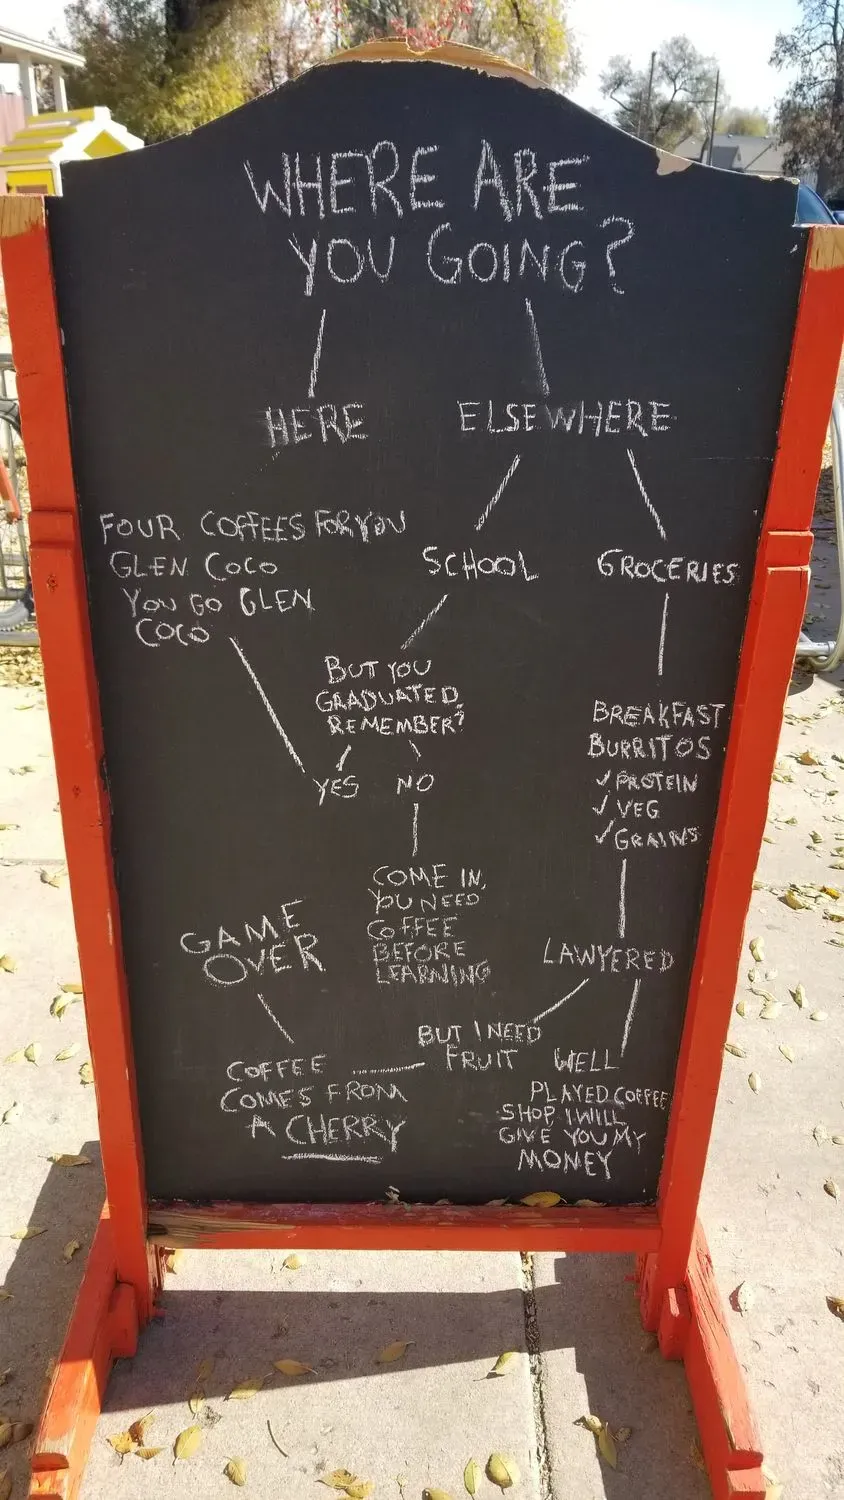 WHERE ARE
YOU GOING?
HERE
ELSEWHERE
FOUR COFFEES FOR YOU
GLEN COCO
YOU GO GLEN
COCO
SCHOOL
GROCERIES
BUT YOU
GRADUATED,
REMEMBER?
YES
NO
BREAKFAST
BURRITOS
✓ PROTEIN
✓ VEG
✓ GRAINS
COME IN,
YOU NEED
COFFEE
BEFORE
LEARNING
GAME
OVER
LAWYERED
BUT I NEED
FRUIT
COFFEE
COMES FROM
A CHERRY
WELL
PLAYED COFFEE
SHOP, I WILL
GIVE YOU MY
MONEY